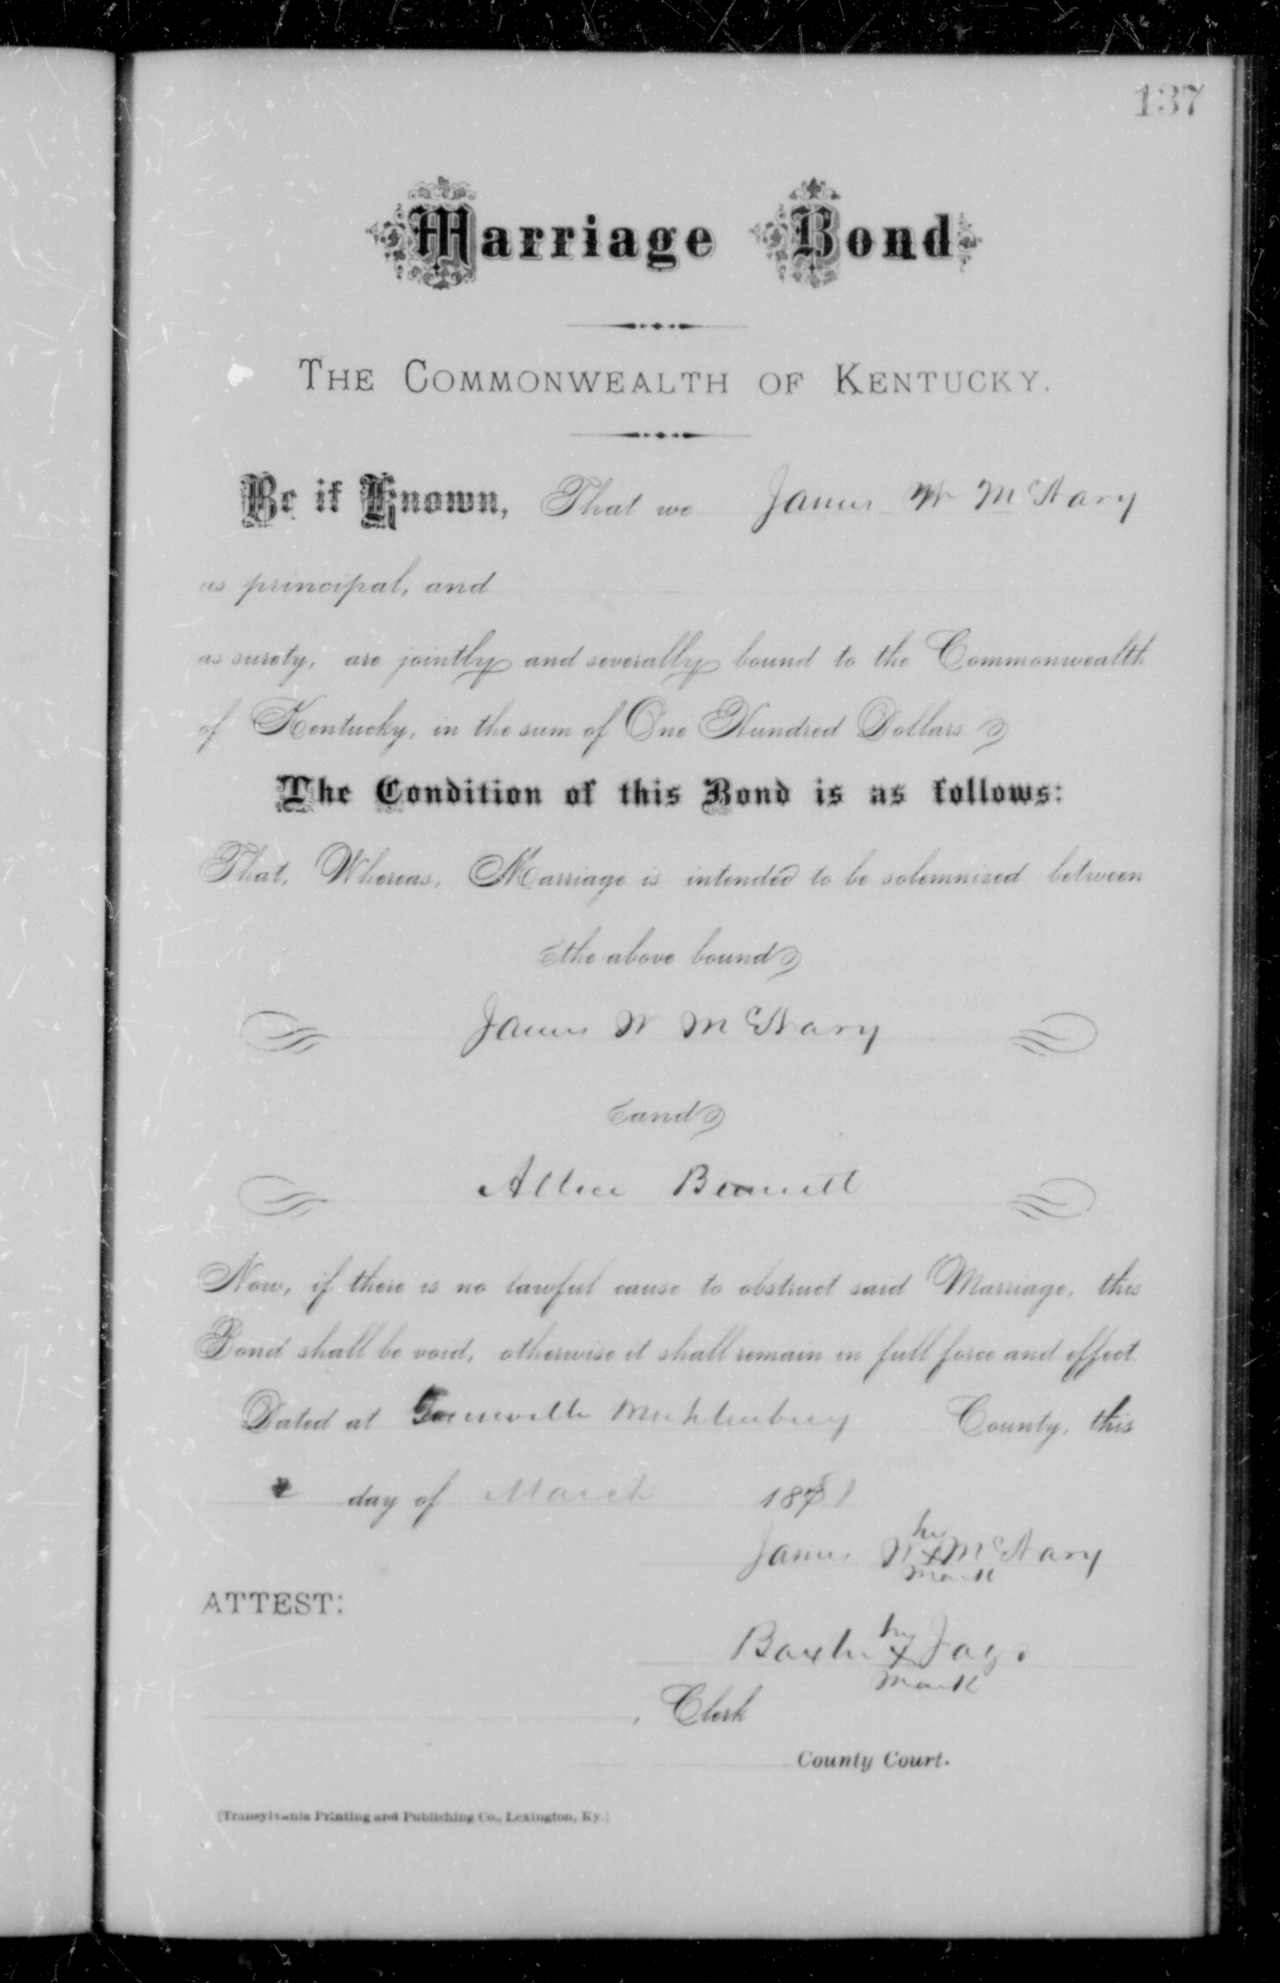 137
Marriage Bond
THE COMMONWEALTH OF KENTUCKY.
Be it Known, That we James W McNary
as principal, and
as surety, are jointly and severally bound to the Commonwealth
of Kentucky, in the sum of One Hundred Dollars.
The Condition of this Bond is as follows:
That, Whereas, Marriage is intended to be solemnized between
the above bound
James W McNary
and
Allice Bennett
Now, if there is no lawful cause to obstruct said Marriage, this
Bond shall be void, otherwise it shall remain in full force and effect.
Dated at Greenville Muhlenburg County, this
day of March 1881
his
James W X McNary
mark
ATTEST:
his
Baxter X Jago
mark
, Clerk
County Court.
[Transylvania Printing and Publishing Co., Lexington, Ky.]